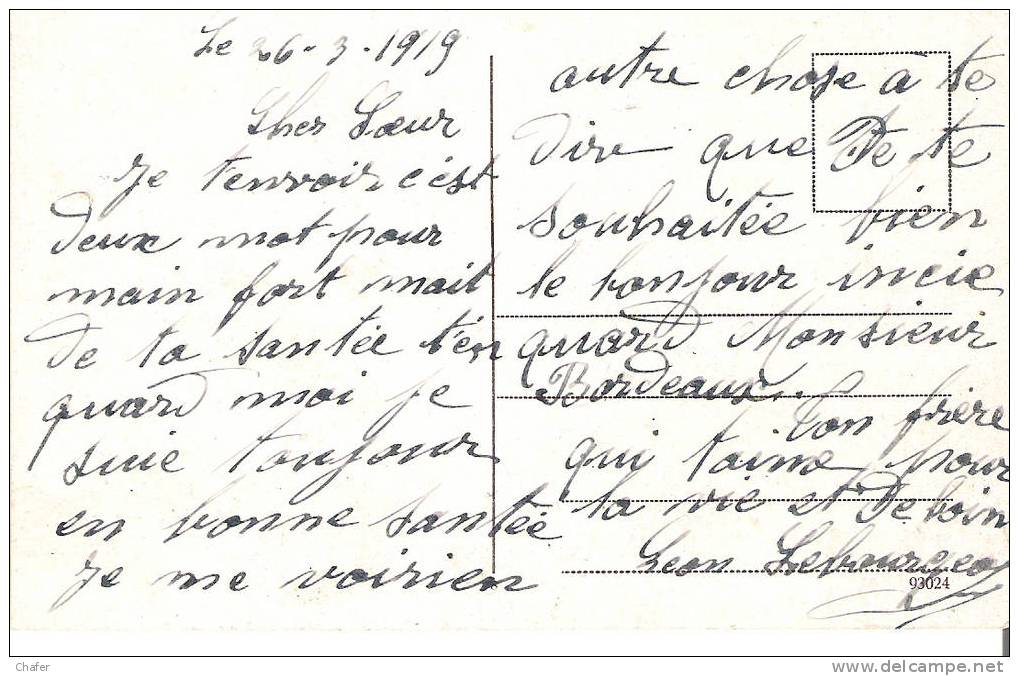 Le 26-3-1919
Cher Sœur
Je t'envoir c'est
deux mot pour
main fort mait
de ta santée t'en
quard moi je
suie toujour
en bonne santée
Je me voirien
autre chose a te
dire que De te
souhaitée bien
le bonjour incie
quard Monsieur
Bordeaux.
Ton frère
qui t'aime pour
la vie et De loin
Léon Lebourgeois
93024
Chafer
www.delcampe.net